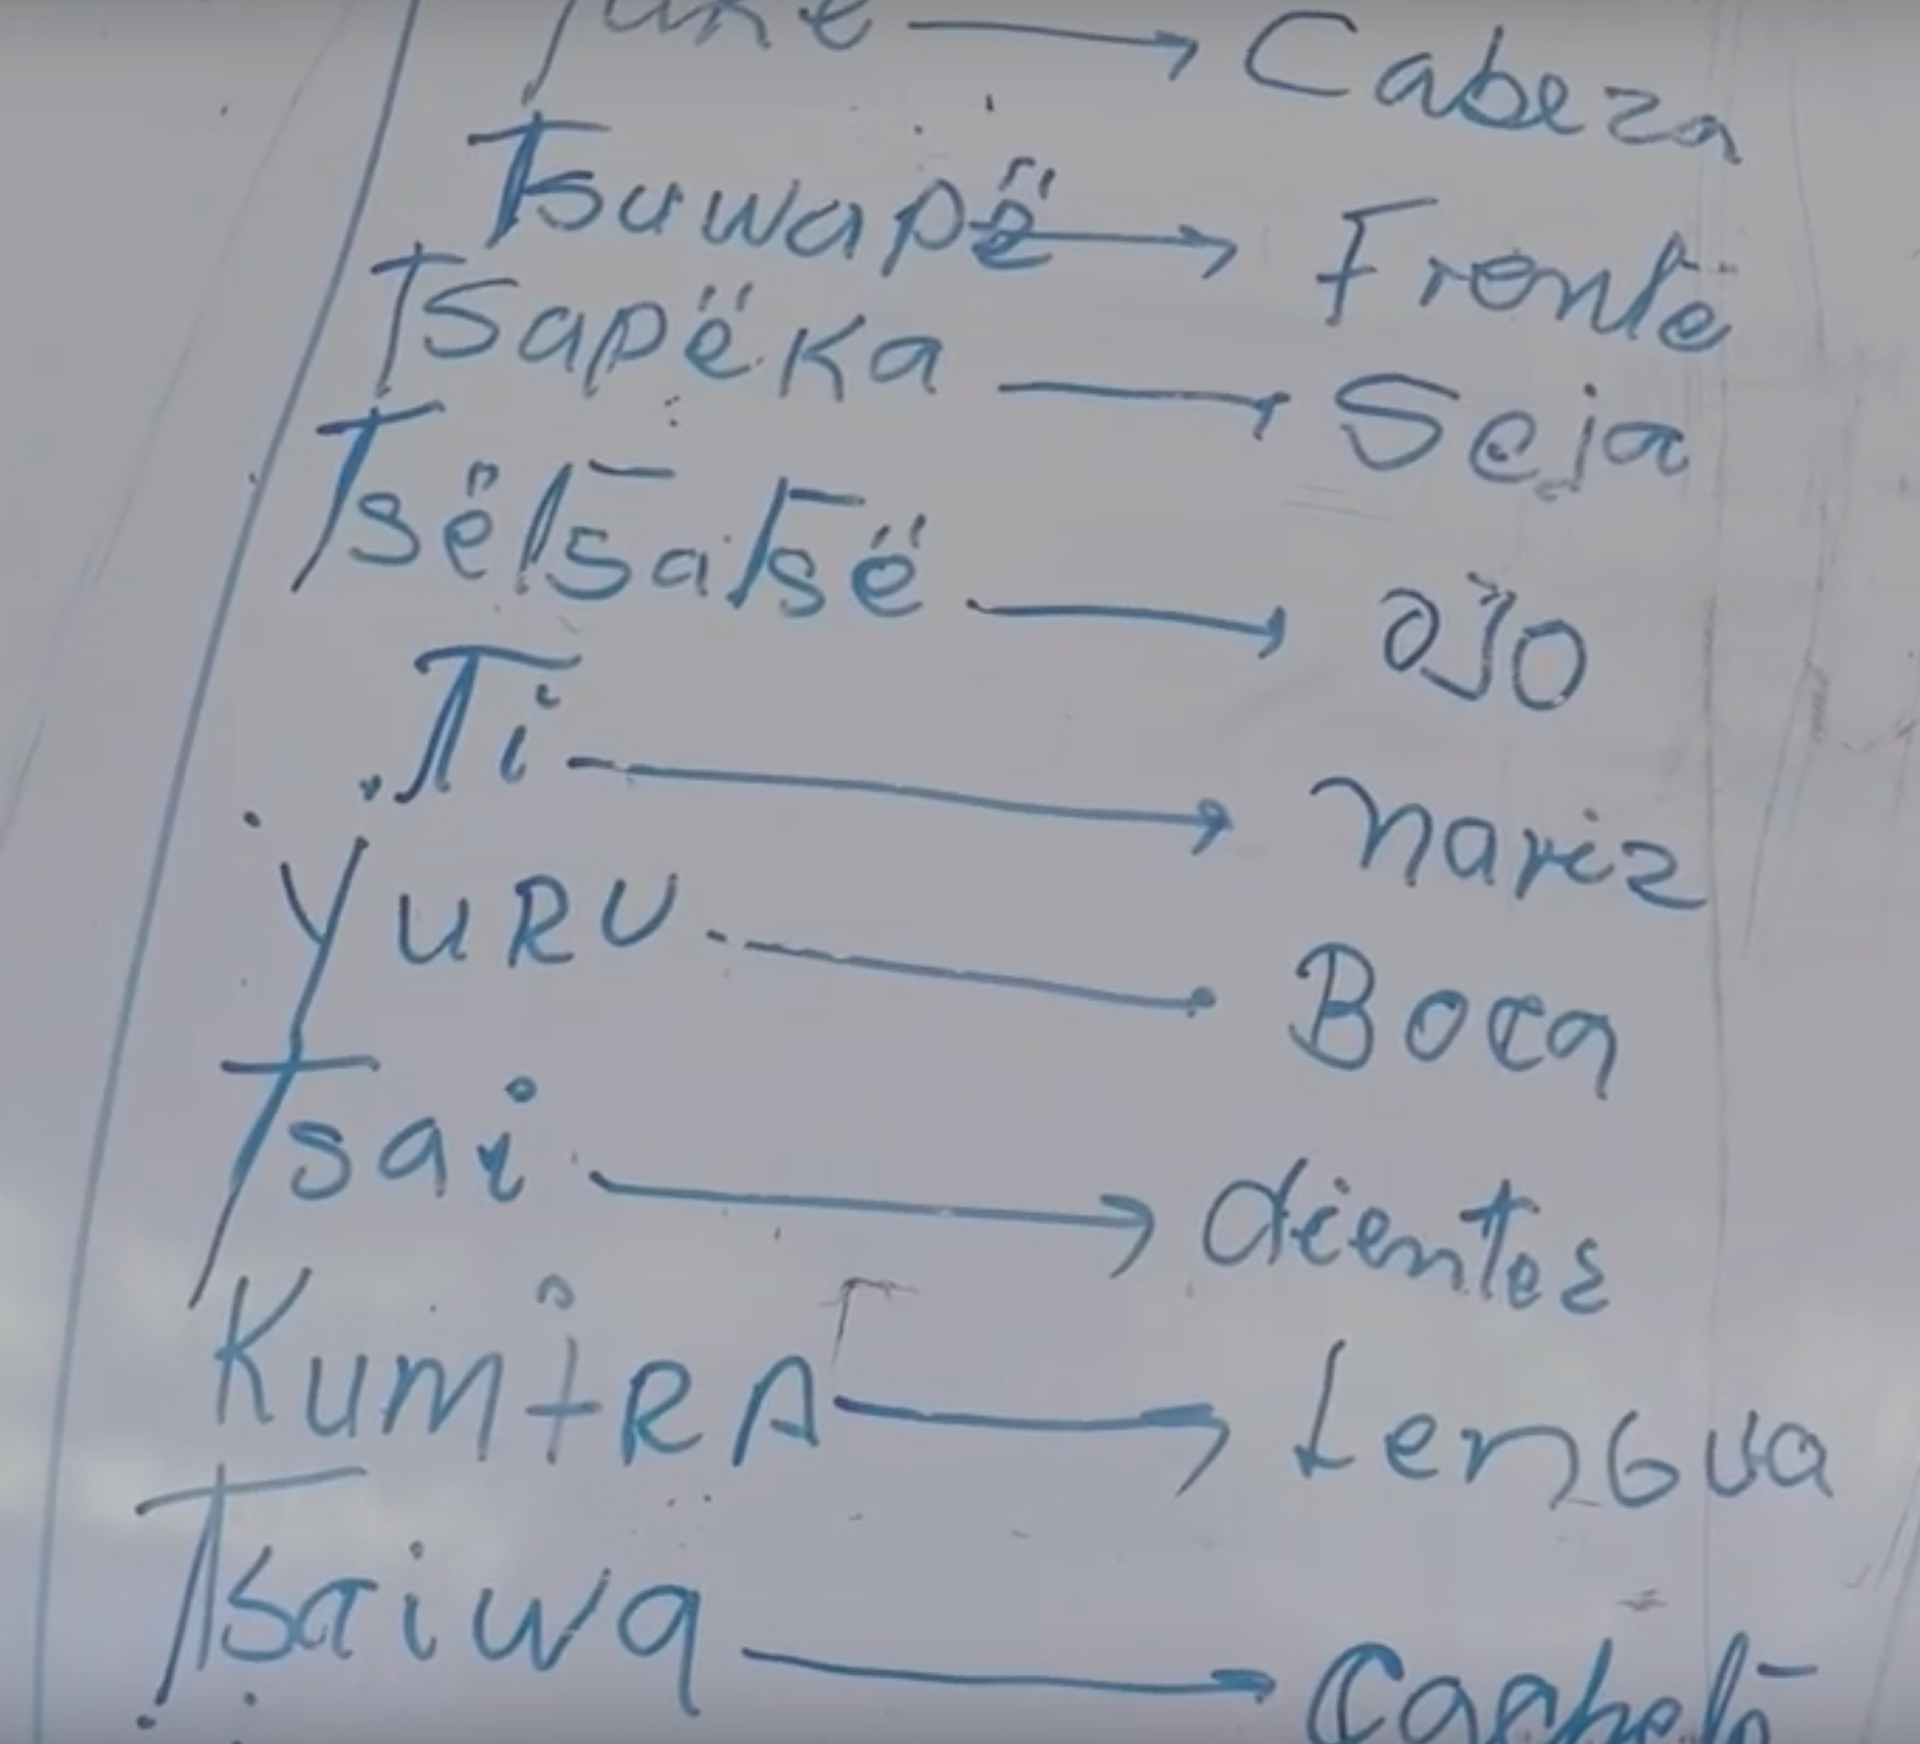 → Cabeza
Tsuwapë → Frente
Tsapëka → Seja
Tsëtsatsë → OJO
Ti → nariz
YURU → Boca
Tsai → dientes
KumɨRA → LenGua
Tsaiwa → Cachete